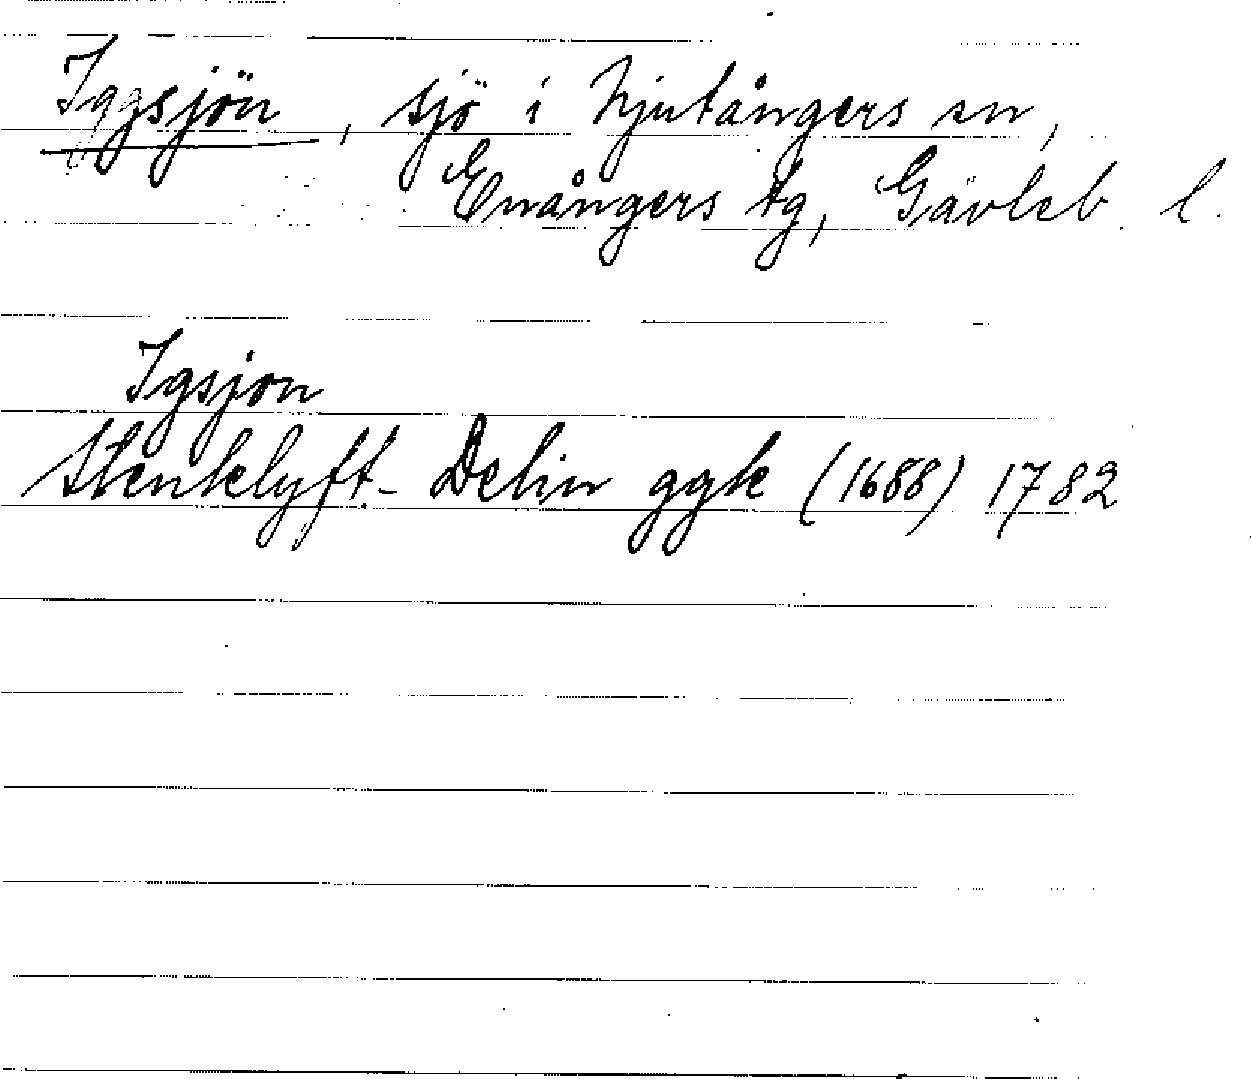 Iggsjön, sjö i Njutångers sn,
Enångers tg, Gävleb. l.
Igsjon
Stenklyft - Delin ggk (1688) 1782